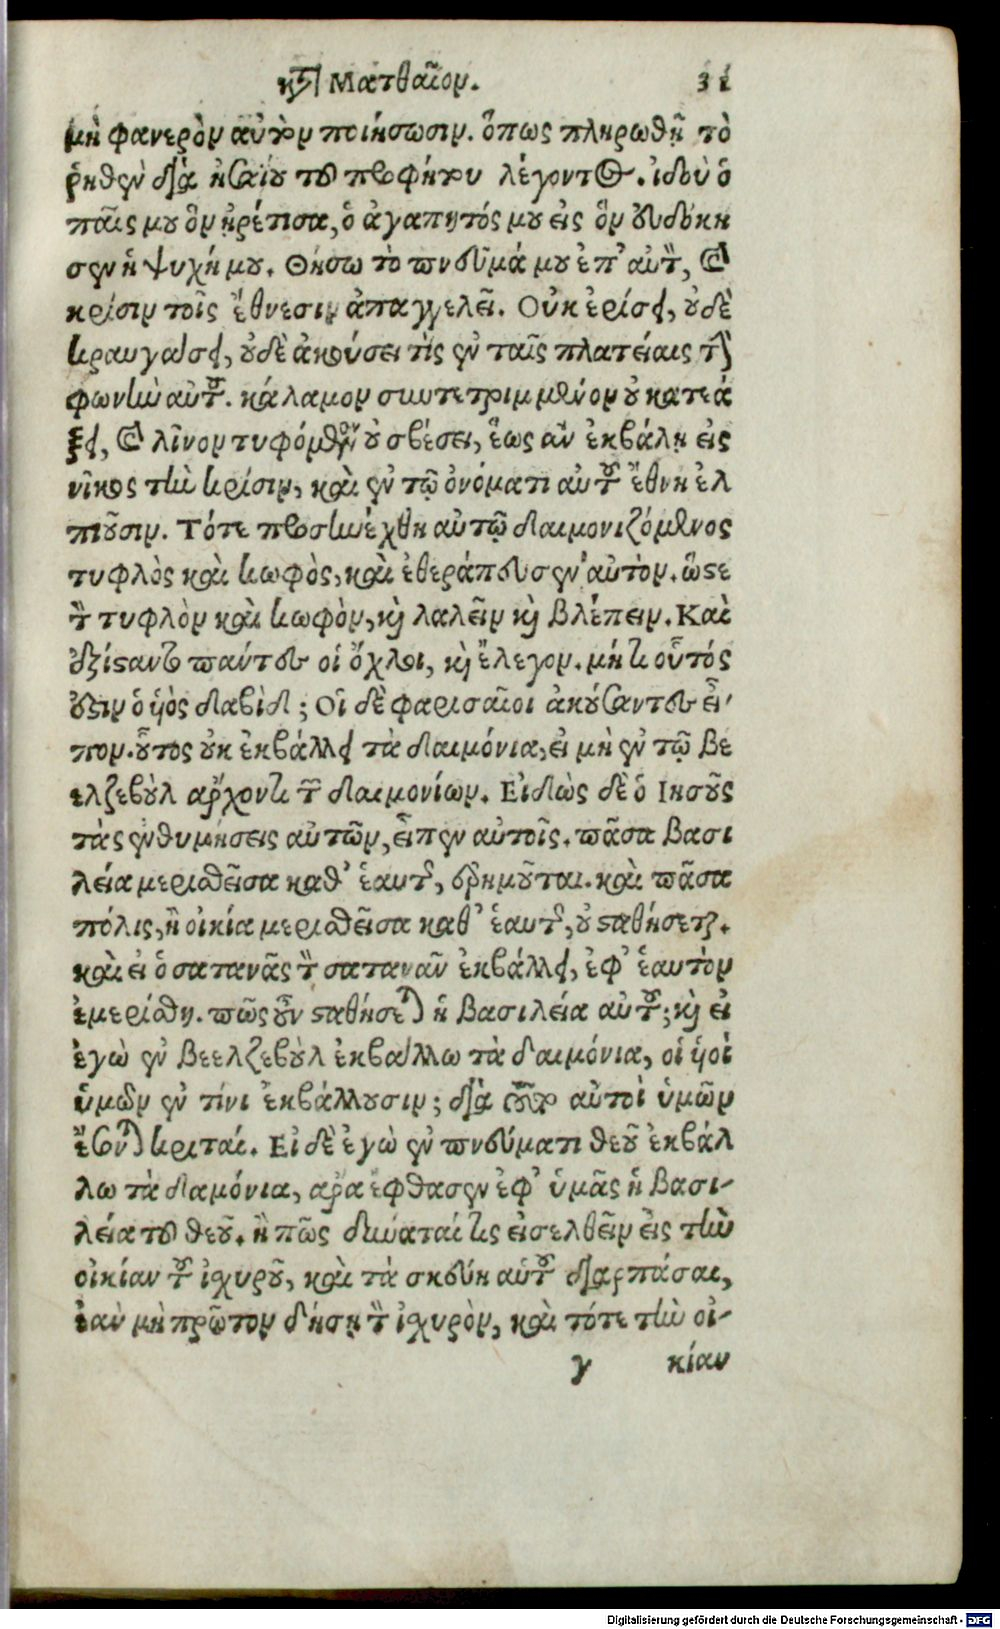 κτ̀ Ματθαῖον. 31
μὴ φανερὸν αὐτὸν ποιήσωσιν. ὅπως πληρωθῇ τὸ
ῥηθὲν διὰ ἠσαΐου τοῦ προφήτου λέγοντος. ἰδοὺ ὁ
παῖς μου ὃν ᾑρέτισα, ὁ ἀγαπητός μου εἰς ὃν εὐδόκη
σεν ἡ ψυχή μου. Θήσω τὸ πνεῦμά μου ἐπ' αὐτὸν, καὶ
κρίσιν τοῖς ἔθνεσιν ἀπαγγελεῖ. Οὐκ ἐρίσει, οὐδὲ
κραυγάσει, οὐδὲ ἀκούσει τὶς ἐν ταῖς πλατείαις τὴν
φωνὴν αὐτοῦ. κάλαμον συντετριμμένον οὐ κατεά
ξει, καὶ λῖνον τυφόμενον οὐ σβέσει, ἕως ἂν ἐκβάλῃ εἰς
νῖκος τὴν κρίσιν, καὶ ἐν τῷ ὀνόματι αὐτοῦ ἔθνη ἐλ
πιοῦσιν. Τότε προσηνέχθη αὐτῷ δαιμονιζόμενος
τυφλὸς καὶ κωφὸς, καὶ ἐθεράπευσεν αὐτὸν. ὥστε
τὸν τυφλὸν καὶ κωφὸν, καὶ λαλεῖν καὶ βλέπειν. Καὶ
ἐξίσαντο πάντες οἱ ὄχλοι, καὶ ἔλεγον. μήτι οὗτός
ἐστιν ὁ ὑὸς δαβίδ; Οἱ δὲ φαρισαῖοι ἀκούσαντες εἶ-
πον. οὗτος οὐκ ἐκβάλλει τὰ δαιμόνια, εἰ μὴ ἐν τῷ βε
ελζεβοὺλ ἄρχοντι τῶν δαιμονίων. Εἰδὼς δὲ ὁ Ιησοῦς
τὰς ἐνθυμήσεις αὐτῶν, εἶπεν αὐτοῖς. πᾶσα βασι
λεία μερισθεῖσα καθ' ἑαυτῆς, ἐρημοῦται. καὶ πᾶσα
πόλις, ἢ οἰκία μερισθεῖσα καθ' ἑαυτῆς, οὐ σταθήσεται.
καὶ εἰ ὁ σατανᾶς τὸν σατανᾶν ἐκβάλλει, ἐφ' ἑαυτὸν
ἐμερίσθη. πῶς οὖν σταθήσεται ἡ βασιλεία αὐτοῦ; καὶ εἰ
ἐγὼ ἐν βεελζεβοὺλ ἐκβάλλω τὰ δαιμόνια, οἱ ὑοὶ
ὑμῶν ἐν τίνι ἐκβάλλουσιν; διὰ τοῦτο αὐτοὶ ὑμῶν
ἔσονται κριταί. Εἰ δὲ ἐγὼ ἐν πνεύματι θεοῦ ἐκβάλ
λω τὰ δαμόνια, ἄρα ἔφθασεν ἐφ' ὑμᾶς ἡ βασι-
λεία τοῦ θεοῦ. ἢ πῶς δύναταί τις εἰσελθεῖν εἰς τὴν
οἰκίαν τοῦ ἰχυροῦ, καὶ τὰ σκεύη αὐτοῦ διαρπάσαι,
ἐαν μὴ πρῶτον δήσῃ τὸν ἰχυρὸν, καὶ τότε τὴν οἰ-
γ κίαν
Digitalisierung gefördert durch die Deutsche Forschungsgemeinschaft - DFG